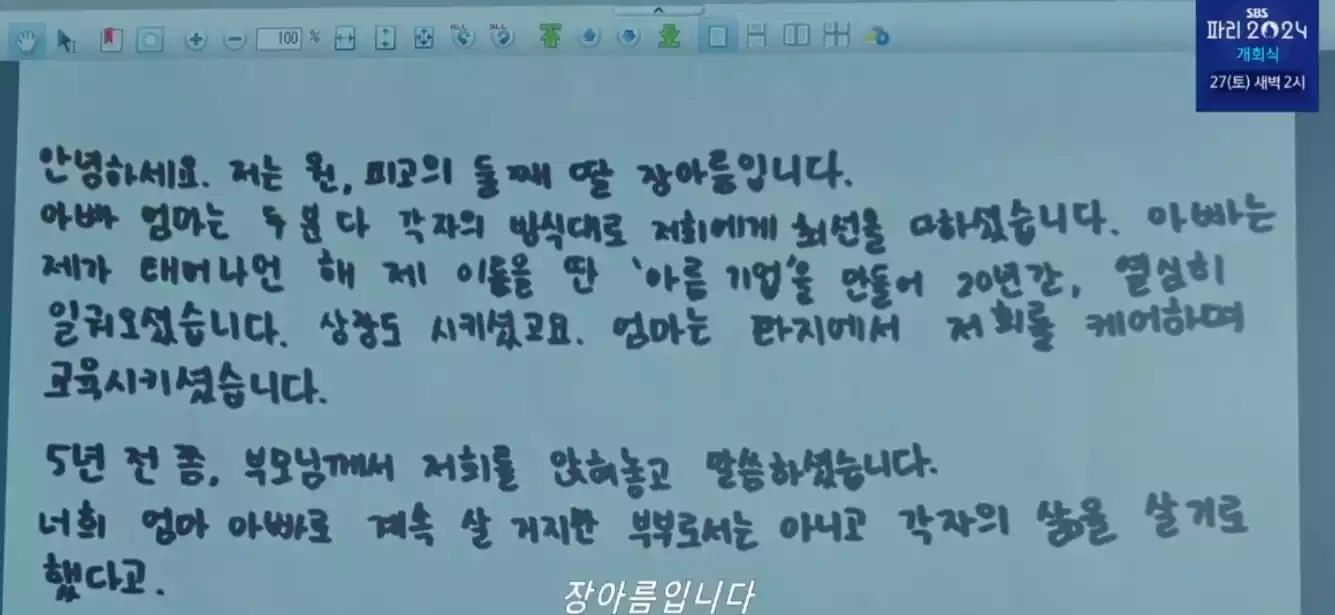 100 %
SBS
파리 2024
개회식
27(토) 새벽 2시
안녕하세요. 저는 원, 피고의 둘째 딸 장아름입니다.
아빠 엄마는 두 분 다 각자의 방식대로 저희에게 최선을 다하셨습니다. 아빠는
제가 태어나던 해 제 이름을 딴 '아름 기업'을 만들어 20년간, 열심히
일궈오셨습니다. 상장도 시키셨고요. 엄마는 타지에서 저희를 케어하며
교육시키셨습니다.
5년 전 쯤, 부모님께서 저희를 앉혀놓고 말씀하셨습니다.
너희 엄마 아빠로 계속 살 거지만 부부로서는 아니고 각자의 삶을 살 거로
했다고.
장아름입니다